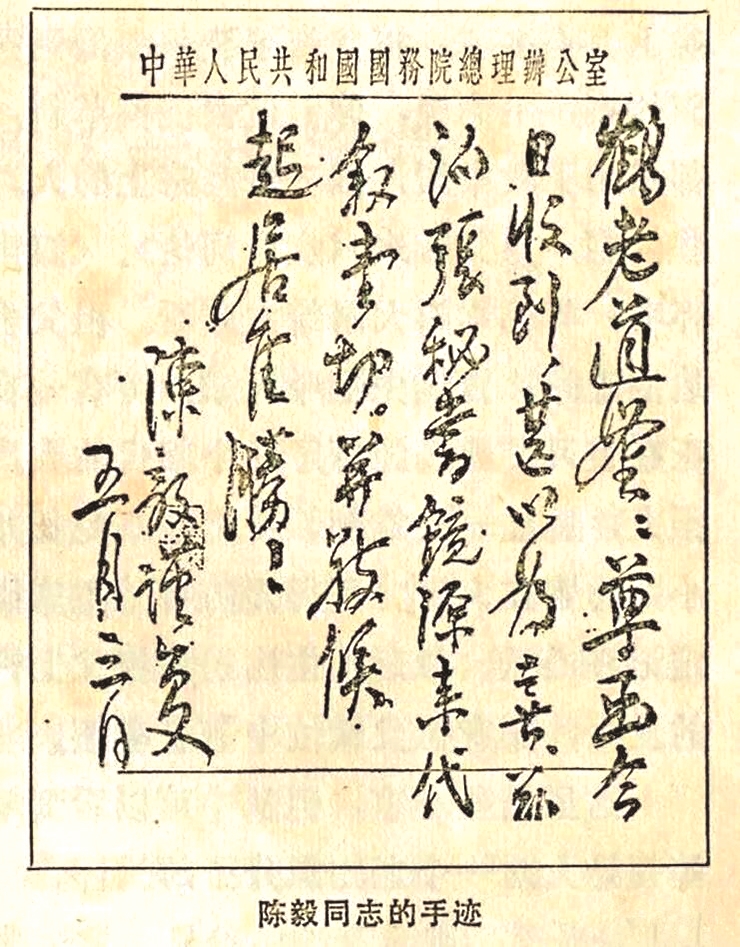 中華人民共和國國務院總理辦公室
鶴老道鑒：尊函今
日收到，甚以為喜。茲
派張秘書鏡源来代
叙壹切。並敬候
起居佳勝！
陳毅謹复
五月三日
陈毅同志的手迹